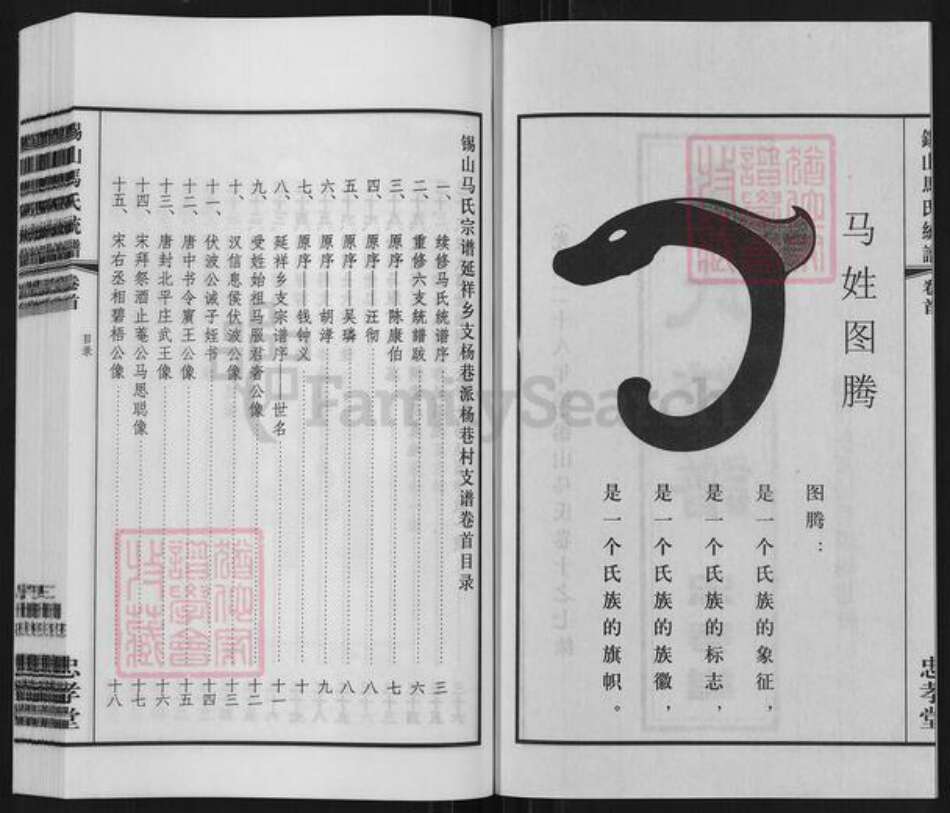 马姓图腾
图腾：
是一个氏族的象征，
是一个氏族的标志，
是一个氏族的族徽，
是一个氏族的旗帜。
忠孝堂
锡山马氏宗谱延祥乡支杨巷派杨巷村支谱卷首目录
一、续修马氏统谱序……三
二、重修六支統譜跋……六
三、原序——陈康伯……七
四、原序——汪彻……八
五、原序——吴璘……八
六、原序——胡淳……九
七、原序——钱钟义……十
八、延祥乡支宗谱序——世名……十一
九、受姓始祖马服君奢公像……十二
十、汉信息侯伏波公像……十三
十一、伏波公诫子姪书……十四
十二、唐中书令賓王公像……十五
十三、唐封北平庄武王像……十六
十四、宋拜祭酒止菴公马思聪像……十七
十五、宋右丞相碧梧公像……十八
錫山馬氏統譜
卷首
目录
忠孝堂
FamilySearch